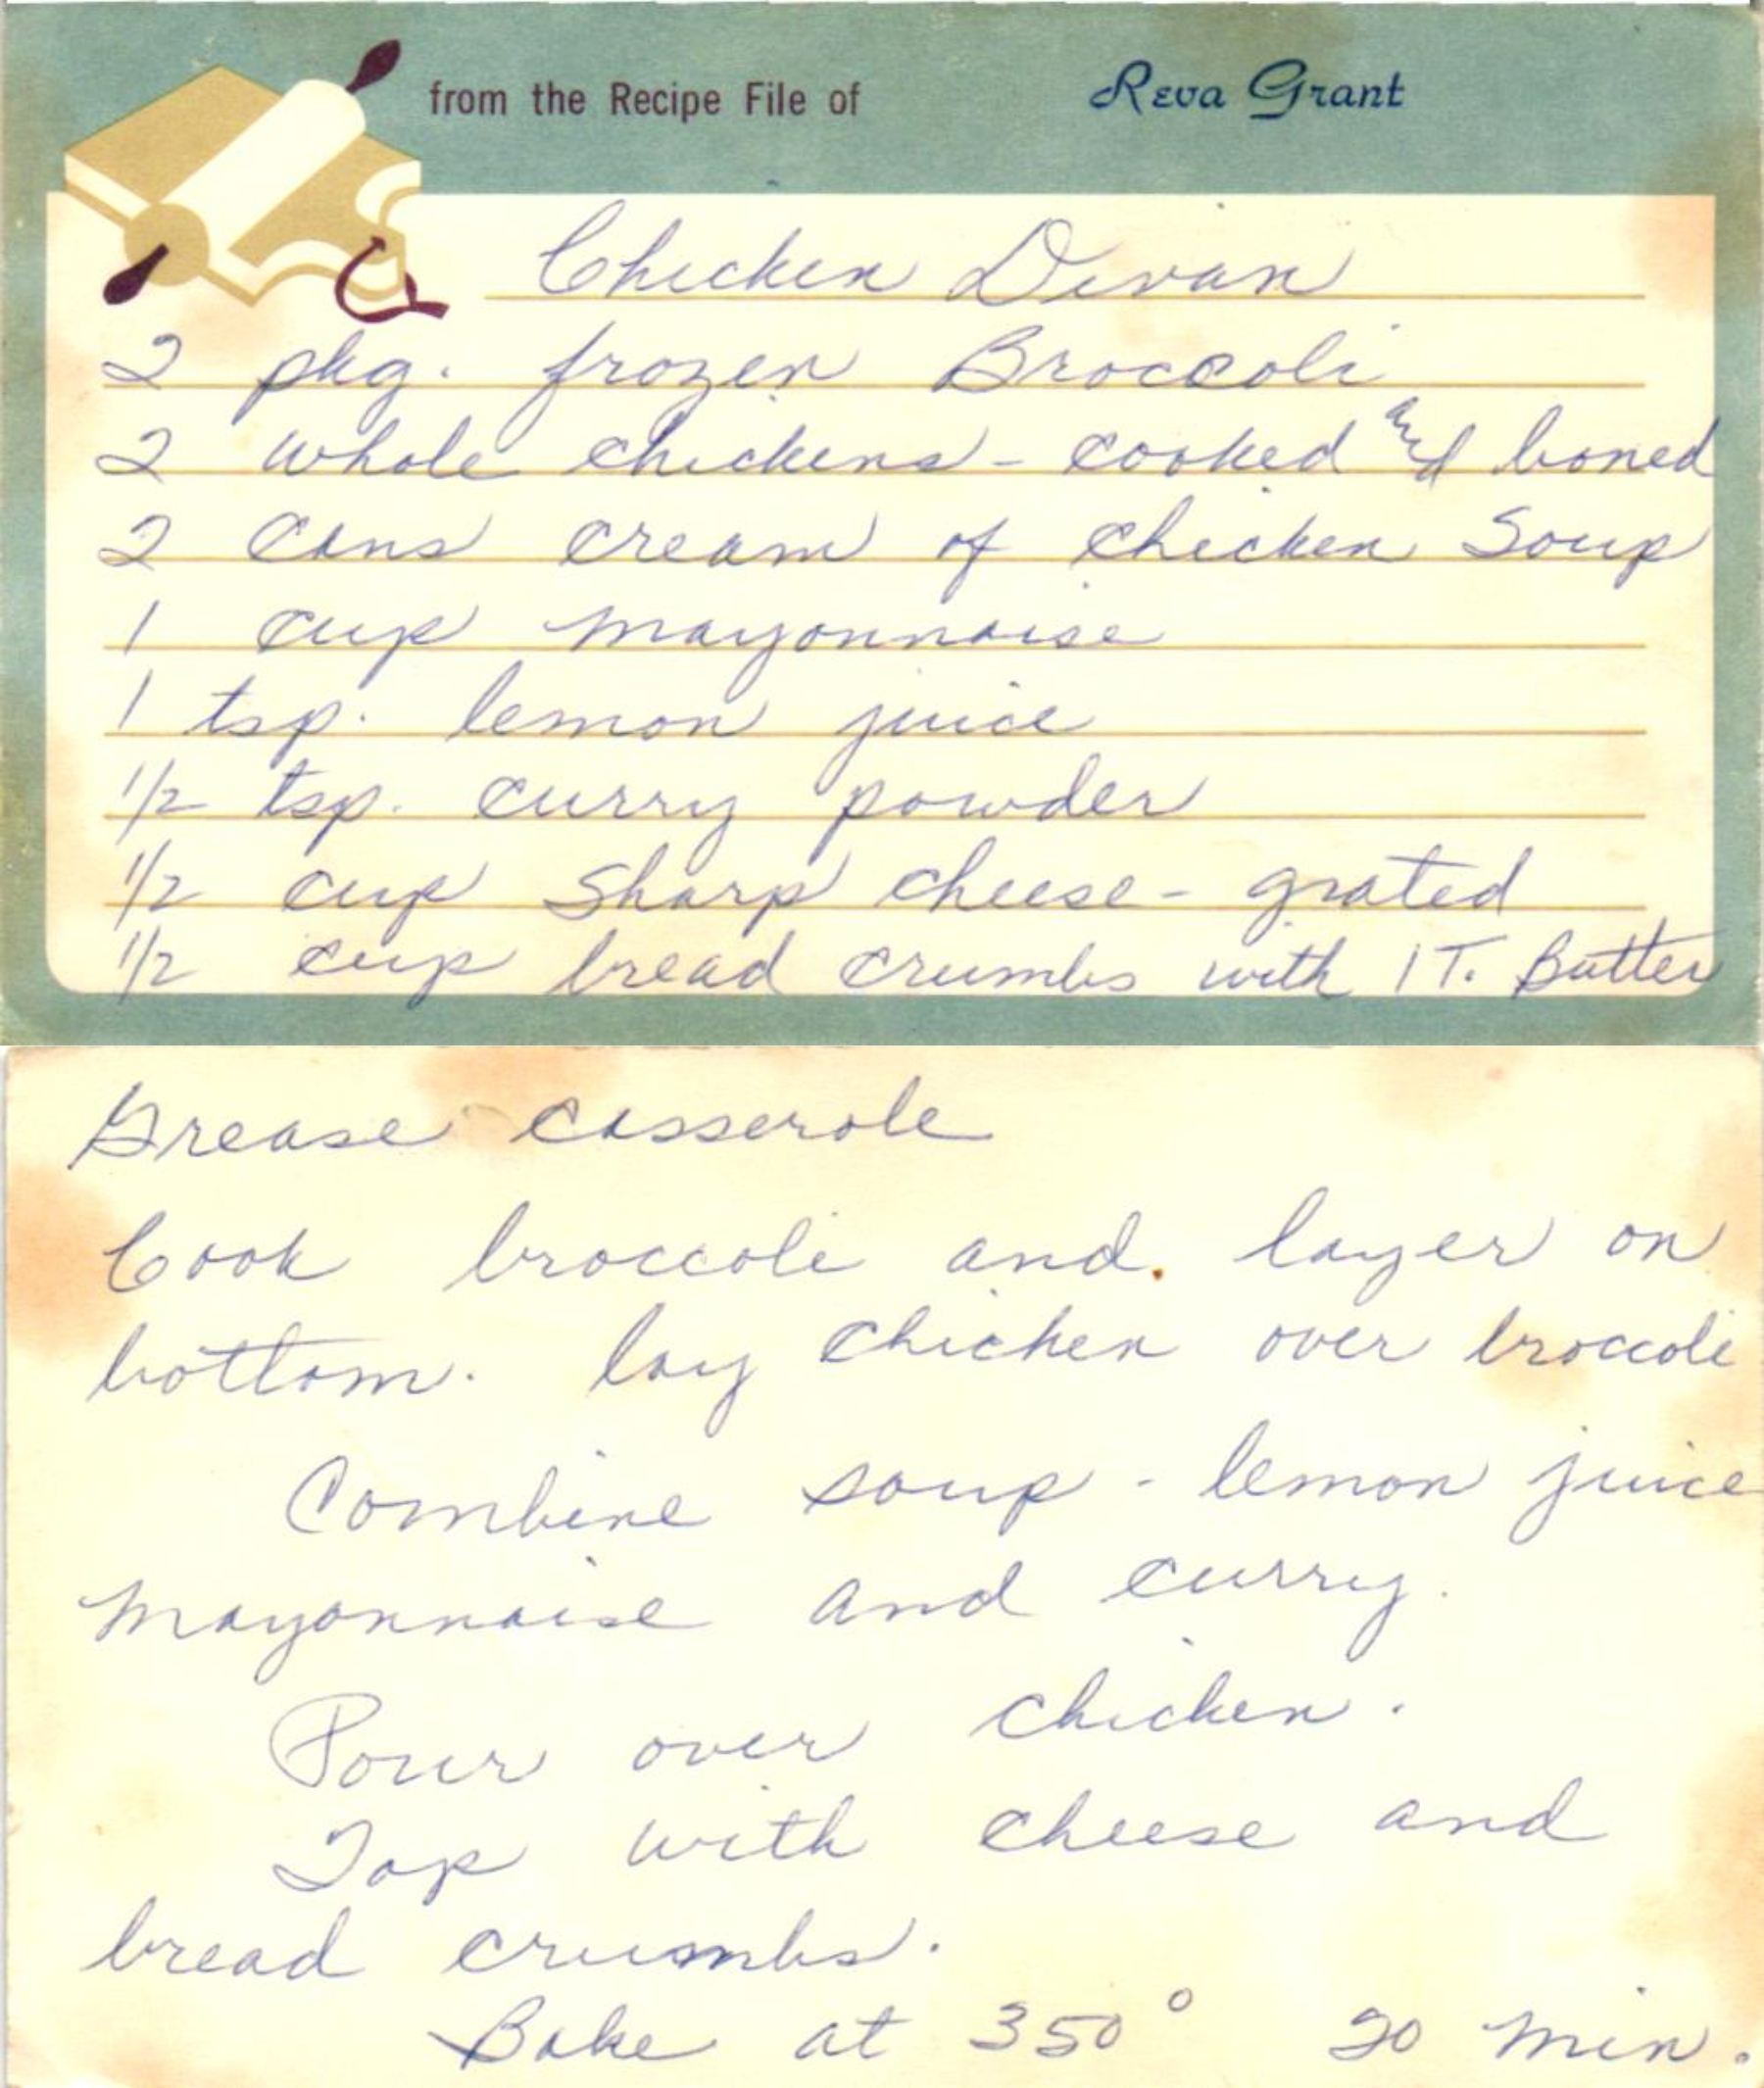 from the Recipe File of Reva Grant
Chicken Divan
2 pkg. frozen Broccoli
2 whole chickens - cooked and boned
2 cans cream of chicken Soup
1 cup mayonnaise
1 tsp. lemon juice
1/2 tsp. curry powder
1/2 cup Sharp cheese - grated
1/2 cup bread crumbs with 1 T. Butter
Grease casserole
Cook broccoli and layer on
bottom. lay chicken over broccoli
Combine soup - lemon juice
mayonnaise and curry.
Pour over chicken.
Top with cheese and
bread crumbs.
Bake at 350° 20 min.